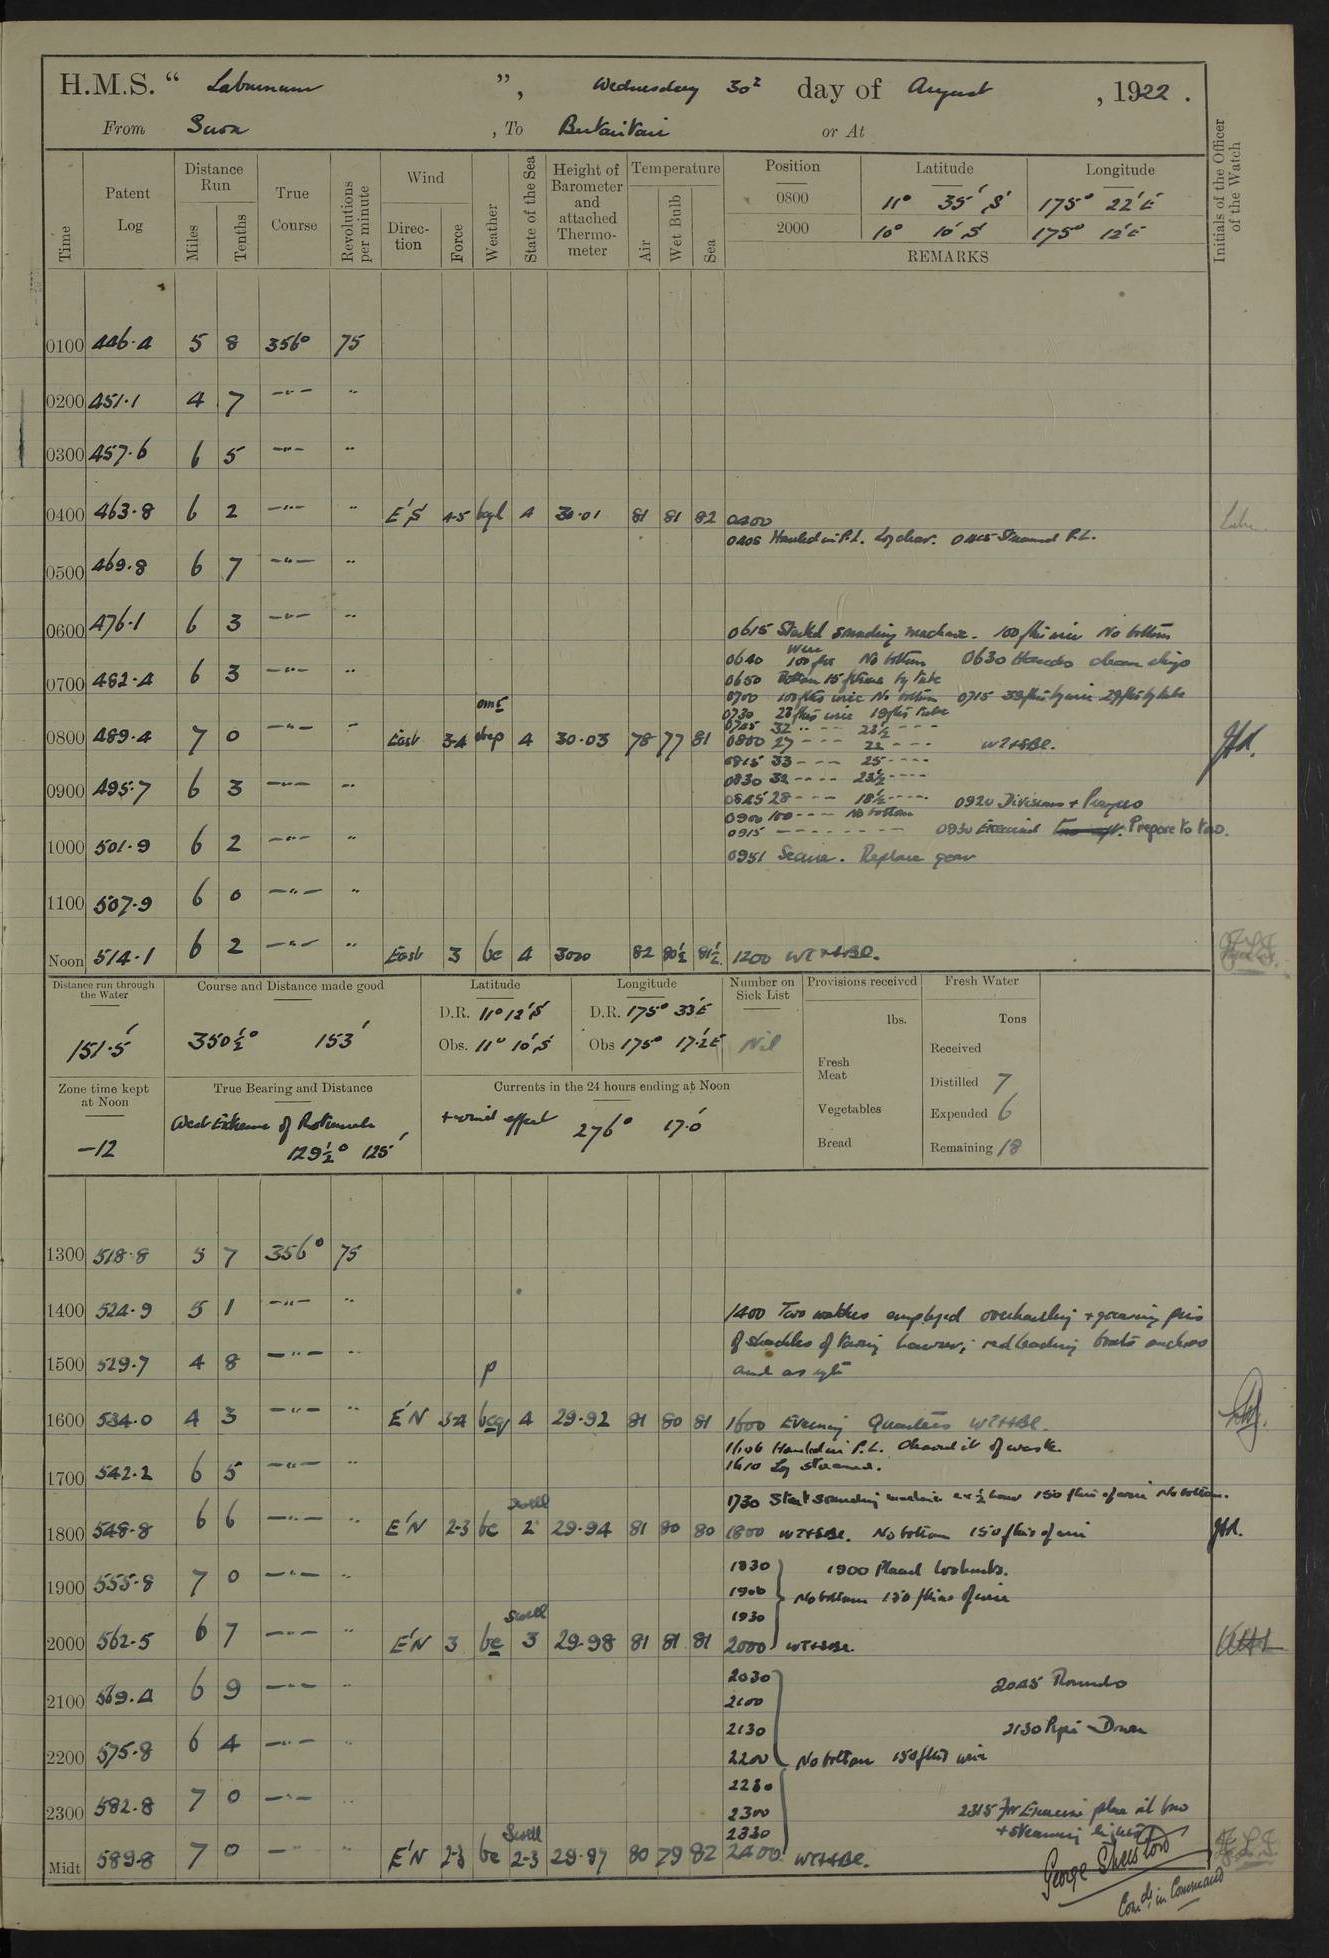 H.M.S. “ Laburnum ”, Wednesday 30th day of August , 1922 .
From Suva , To Butaritari or At
Time
Patent Log
Distance Run
Miles
Tenths
True Course
Revolutions per minute
Wind
Direction
Force
Weather
State of the Sea
Height of Barometer and attached Thermometer
Temperature
Air
Wet Bulb
Sea
Position Latitude Longitude
0800 11° 35′ S 175° 22′ E
2000 10° 10′ S 175° 12′ E
REMARKS
Initials of the Officer of the Watch
0100 446.4 5 8 356° 75
0200 451.1 4 7 —"— "
0300 457.6 6 5 —"— "
0400 463.8 6 2 —"— " E'S 4-5 bcql 4 30.01 81 81 82 0400
0405 Hauled in P.L. Log clear. 0415 Streamed P.L.
0500 469.8 6 7 —"— "
0600 476.1 6 3 —"— "
0615 Started sounding machine. 100 fms wire No bottom
0640 100 fms wire No bottom 0630 Hands clean ship
0700 482.4 6 3 —"— "
0650 Bottom 15 fthms by tube
0700 100 fths wire No bottom 0715 39 fths by wire 29 fths by tube
0730 28 fths wire 19 fths tube
0745 32 " -- 23½ ----
0800 489.4 7 0 —"— " East 3-4 4 30.03 78 77 81 0800 27 --- 22 --- WT+SBL.
0815 33 ---- 25 ----
0830 32 ---- 23½ ----
0900 495.7 6 3 —"— "
0845 28 --- 18½ ---- 0920 Divisions + Prayers
0900 100 --- No bottom
0915 ------- 0930 Exercised Prepare to tow.
1000 501.9 6 2 —"— "
0951 Secure. Replace gear
1100 507.9 6 0 —"— "
Noon 514.1 6 2 —"— " East 3 bc 4 3000 82 80½ 81½ 1200 WT+SBL.
Distance run through the Water
151.5′
Course and Distance made good
350½° 153′
Latitude
D.R. 11° 12′ S
Obs. 11° 10′ S
Longitude
D.R. 175° 33′ E
Obs 175° 17.2′ E
Number on Sick List
Nil
Provisions received
lbs.
Fresh Meat
Vegetables
Bread
Fresh Water
Tons
Received
Distilled 7
Expended 6
Remaining 18
Zone time kept at Noon
-12
True Bearing and Distance
West Extreme of Rotumah
129½° 125′
Currents in the 24 hours ending at Noon
+ wind effect 276° 17.0′
1300 518.8 5 7 356° 75
1400 524.9 5 1 —"— "
1400 Two watches employed overhauling + greasing pins
of shackles of towing hawser; redleading boats anchors
1500 529.7 4 8 —"— "
and as
p
1600 534.0 4 3 —"— " E'N 3-4 bcq 4 29.92 81 80 81 1600 Evening Quarters WT+SBL.
1606 Hauled in P.L. Cleared it of weed.
1610 Log streamed.
1700 542.2 6 5 —"— "
1730 Start sounding machine ev ½ hour 150 fths of wire No bottom.
swell
1800 548.8 6 6 —"— " E'N 2-3 bc 2 29.94 81 80 80 1800 WT+SBL. No bottom 150 fths of wire
1830 1900 Placed lookouts.
1900 555.8 7 0 —"— "
1900 No bottom 150 fthms of wire
1930
swell
2000 562.5 6 7 —"— " E'N 3 bc 3 29.98 81 81 81 2000 WT+SBL.
2030 2045 Rounds
2100 569.4 6 9 —"— "
2100
2130 2130 Pipe Down
2200 575.8 6 4 —"— " 2200 No bottom 150 fths wire
2230
2300 582.8 7 0 —"— "
2300 2315 For Exercise place in tow
2330 + steaming lights
Swell
Midt 589.8 7 0 — " E'N 2-3 bc 2-3 29.97 80 79 82 2400 WT+SBL.
George
Comdr in Command